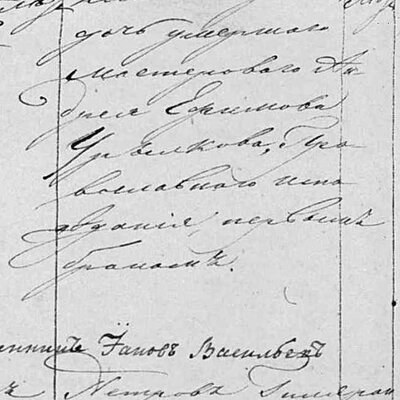 дочь умершаго
мастероваго Ан-
дрея Ефимова
Пра-
вославнаго испо-
веданія, первымъ
бракомъ.
Яковъ Васильевъ
Петровъ